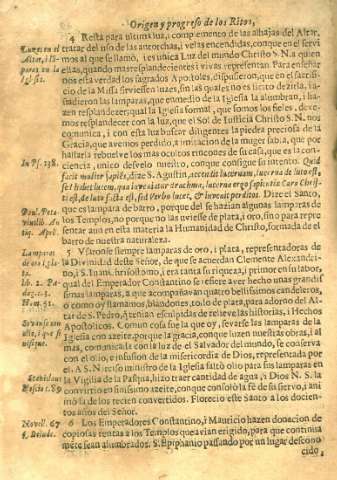 Origen y progreso de los Ritos,
4 Resta para ultima luz, i complemento de las alhajas del Altar,
tratar del uso de las antorchas, i velas encendidas, conque en el servi
mos al que se llamò, i es unica Luz del mundo Christo S.N. a quien
ellas, quando mas resplandecientes i vivas representan. Para enseñar
nos esta verdad los sagrados Apostoles, dispusieron, que en el sacrifi-
cio de la Missa sirviessen luzes, sin las quales no es licito dezirla, i
sadieron las lamparas, que en medio de la Iglesia la alumbran, i ha-
zen resplandecer, qual la Iglesia formal, que somos los fieles, deve-
mos resplandecer con la luz, que el Sol de Iusticia Christo S.N. nos
comunica, i con esta luz buscar diligentes la piedra preciosa de la
Gracia, que avemos perdido, a imitacion de la muger sabia, que por
hallarla rebuelve los mas ocultos rincones de su casa, que es la con-
ciencia, unico desvelo nuestro, conque consigue su intento. Quid
facit mulier sapiens, dize S. Agustin, accendit lucernam, lucerna de luto est,
sed lucet lucem, qua invenitur drachma, lucerna ergo sapientia Caro Chris-
ti est, de luto facta est, sed Verbo lucet, & invenit perditos. Dize el Santo,
que es lampara de barro, porque del se hazian algunas lamparas de
los Templos, no porque no las uviesse de plata, i oro, sino para repre
sentar aun en esta materia la Humanidad de Christo, formada de el
barro de nuestra naturaleza.
5 Usaronse siempre lamparas de oro, i plata, representadoras de
la Divinidad deste Señor, de que se acuerdan Clemente Alexandri-
no, i S. Iuan Chrisostomo, i era tanta su riqueza, i primor en su labor,
qual del Emperador Constantino se refiere aver hecho unas grandi
simas lamparas, a que acompañavan quatro bellissimos candeleros,
o como oy llamamos blandones, todo de plata, para adorno del Al-
tar de S. Pedro, i tenian esculpidas de relieve las historias, i Hechos
Apostolicos. Comun cosa fue la que oy, ferverse las lamparas de la
Iglesia con azeite, porque la gracia, conque luzen nuestras obras, i al
mas, comunicada con la luz de el Salvador del mundo, se conserva
con el olio, e infusion de la misericordia de Dios, representada por
el. A S. Narciso ministro de la Iglesia faltò olio para sus lamparas en
la Vigilia de la Pasqua, hizo traer cantidad de agua, i Dios N. S. la
convirtio en finissimo azeite, conque consolò la fè de su servo, i ani
mò la de los recien convertidos. Florecio este Santo a los docien-
tos años del Señor.
6 Los Emperadores Constantino, i Mauricio hazen donacion de
copiosas rentas a los Templos que avian erigido, para que continua
mẽte sean alumbrados. S. Epiphanio passando por un lugar descono
cido,
In Ps. 138.
Lamparas
de oro i pla-
ta.
Hom. 51.
Novell. 67